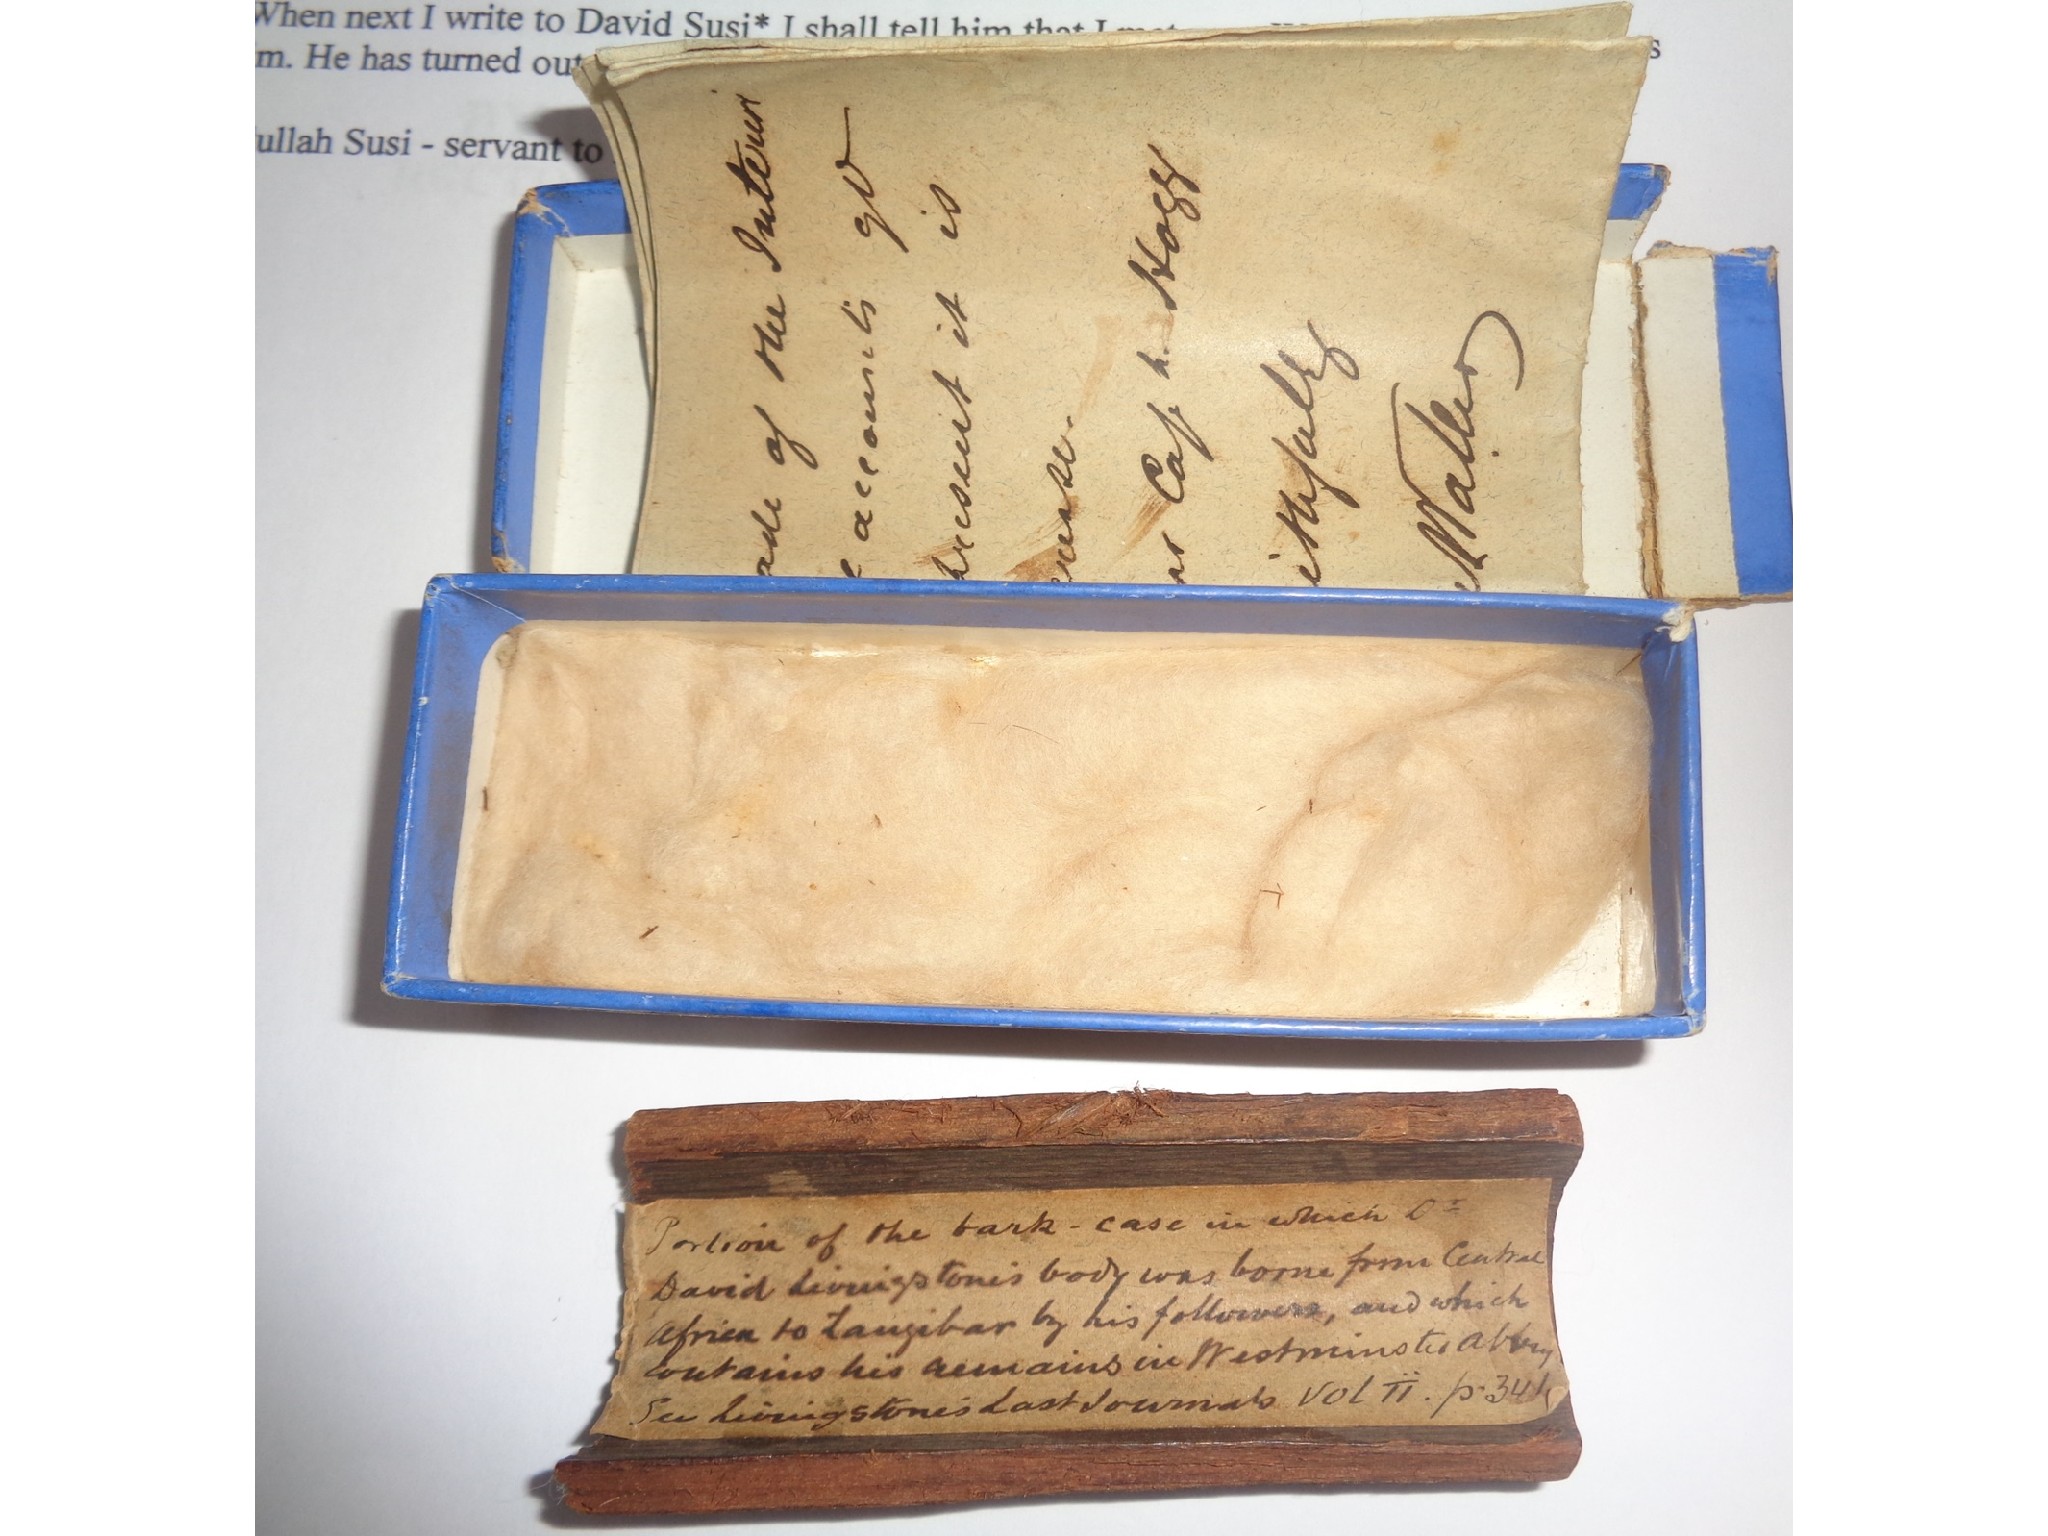 When next I write to David Susi* I shall tell him that I met
m. He has turned out
ullah Susi - servant to
ade of the Interior
accounts go
present it is
Cap n. Hogg
ithfully
Waller
Portion of the bark-case in which Dr
David Livingstone's body was borne from Central
Africa to Zanzibar by his followers, and which
contains his remains in Westminster Abbey
See Livingstone's Last Journals Vol II. p. 34